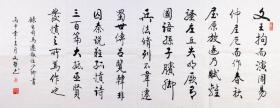 文拘而演周易
仲尼厄而作春秋
屈原放逐乃賦離
騷左丘失明厥有
國語孫子臏腳
兵法修列不韋遷
蜀世傳呂覽韓非
囚秦說難孤憤詩
三百篇大抵聖賢
發憤之所為作也
錄自司馬遷報任少卿書